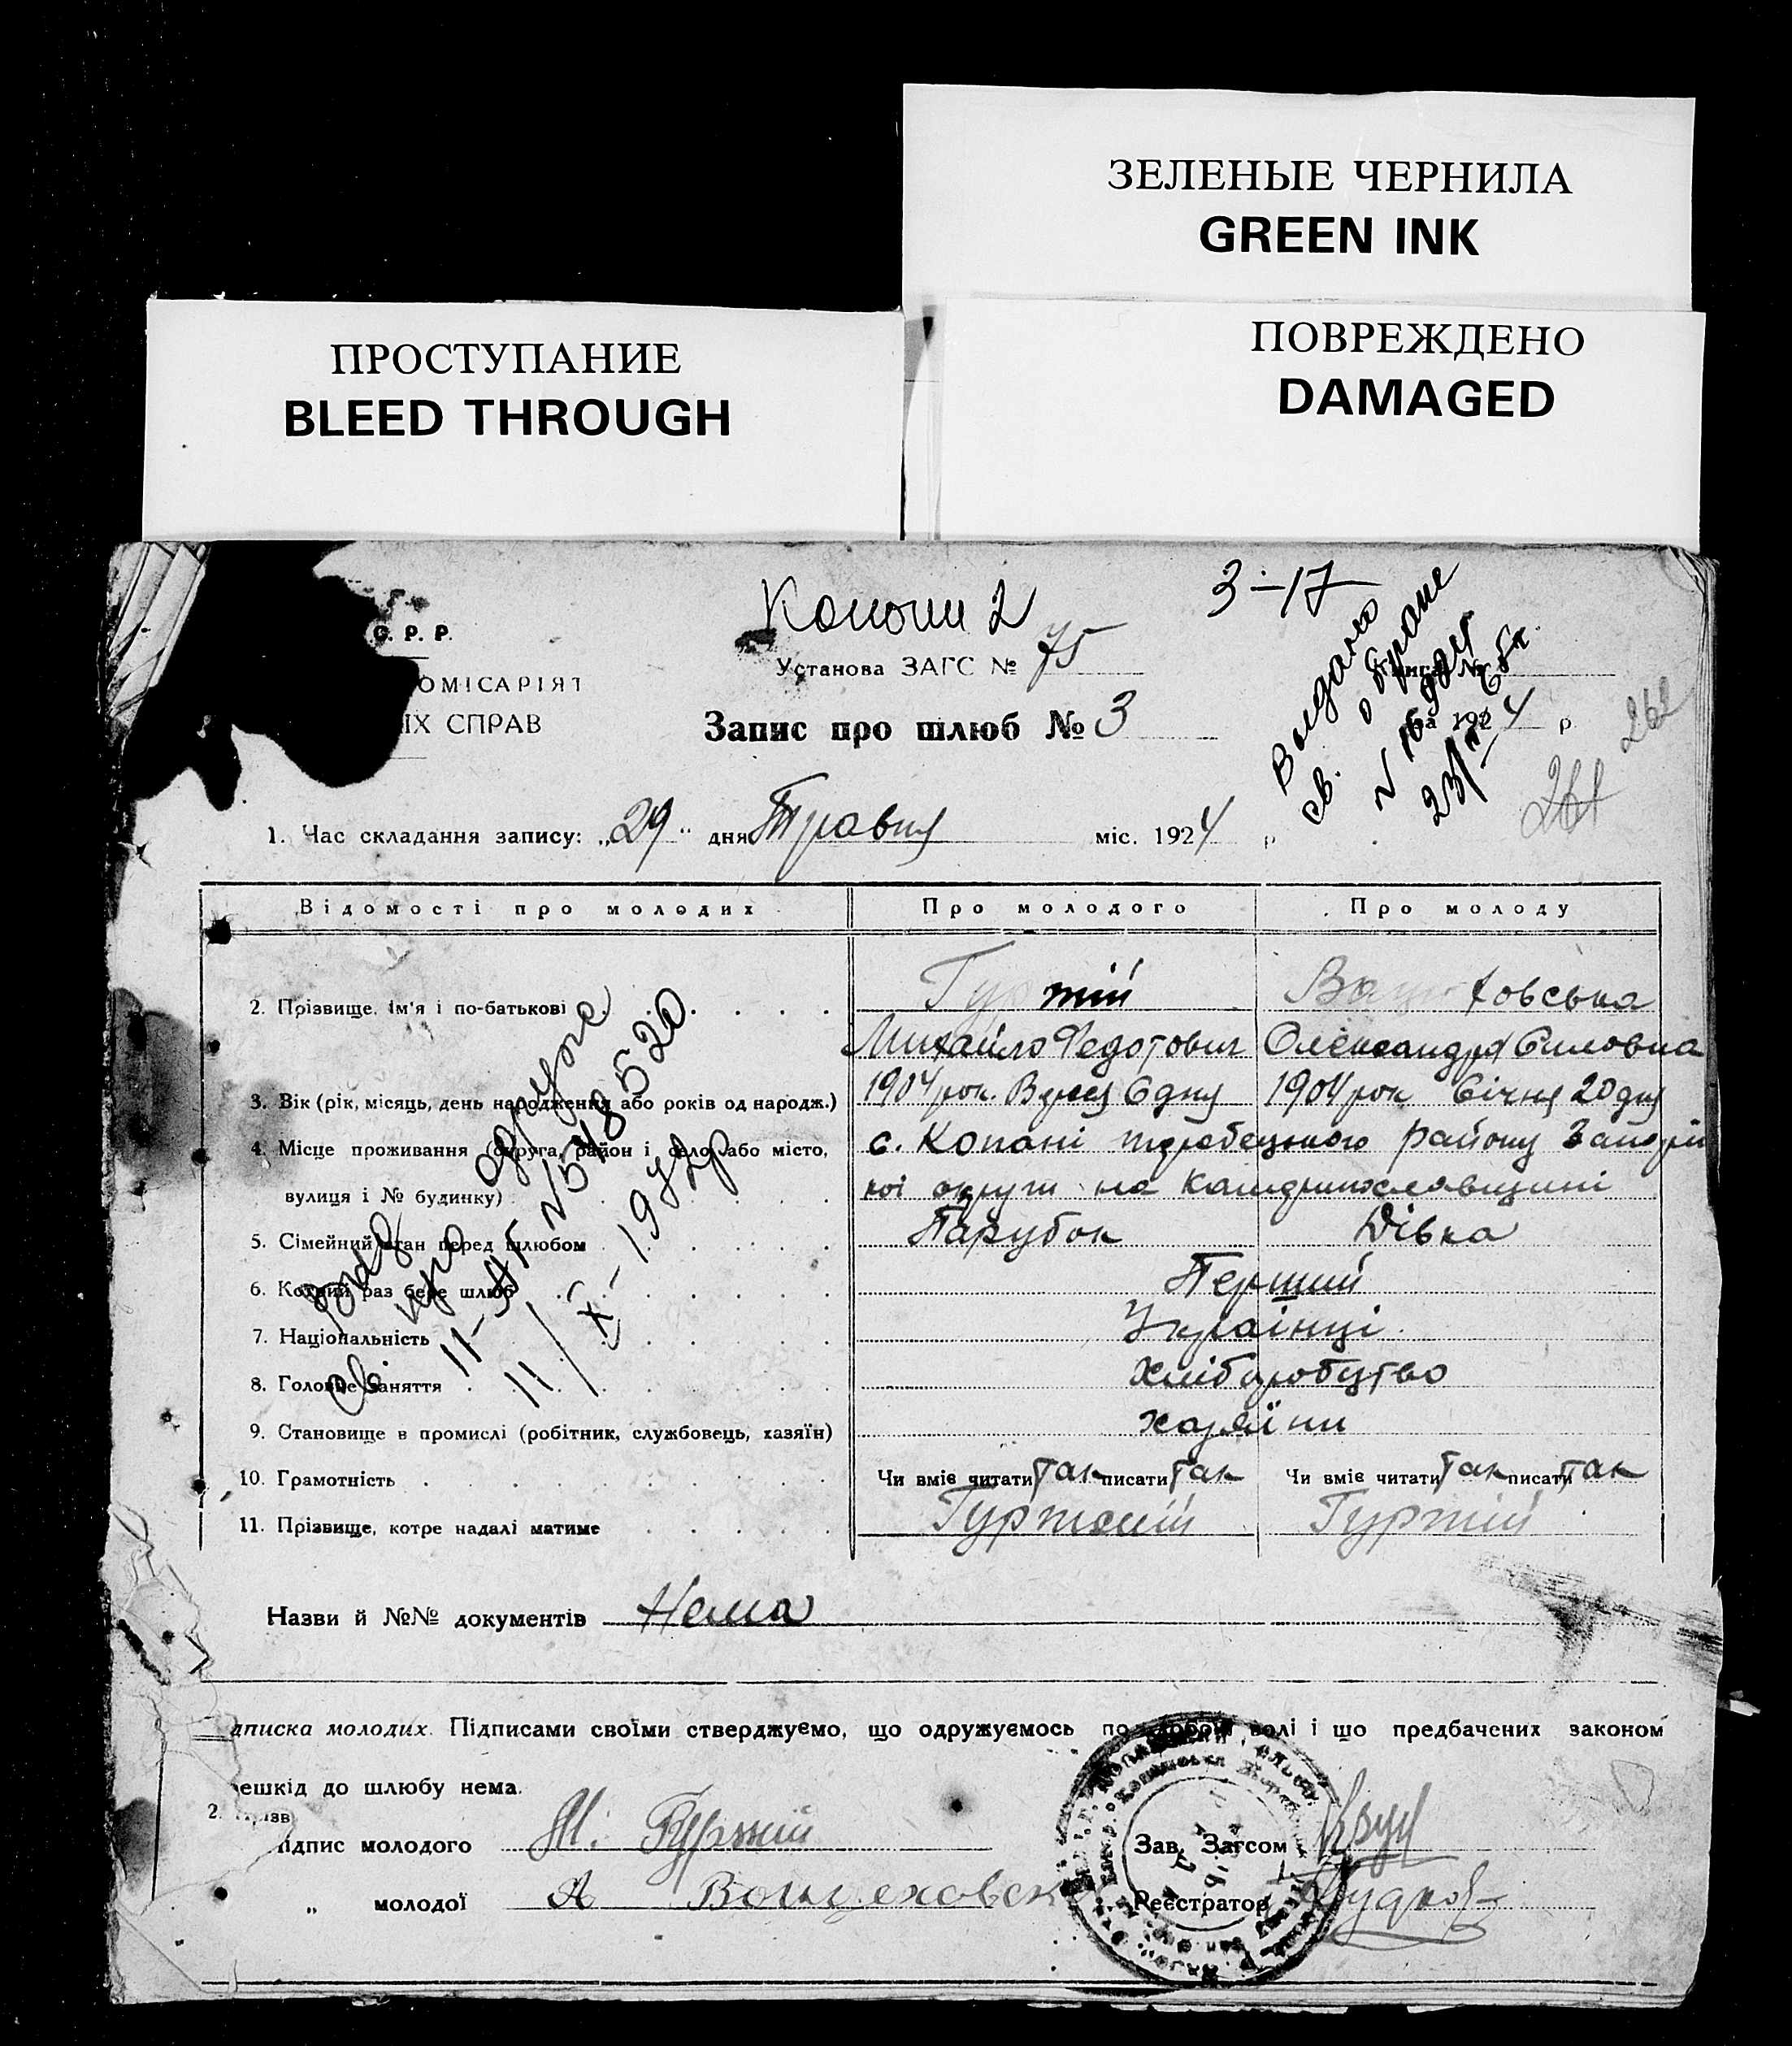 ЗЕЛЕНЫЕ ЧЕРНИЛА
GREEN INK
ПРОСТУПАНИЕ
BLEED THROUGH
ПОВРЕЖДЕНО
DAMAGED
С. Р. Р.
ОМІСАРІЯТ
ІХ СПРАВ
Копони 2
3-17
Установа ЗАГС № 75
Запис про шлюб № 3
Книга №
за 1924 р
Выдано
св. о браке
23/
262
261
1. Час складання запису: „29" дня Травня міс. 1924 р
Відомості про молодих
Про молодого
Про молоду
2. Прізвище, ім'я і по-батькові
Гуржій
ховська
Михайло Федотович
Олександра Силовна
3. Вік (рік, місяць, день народження або років од народж.)
1904 рок. Вересня 6 дня
1904 рок Січня 20 дня
4. Місце проживання (округа, район і село або місто,
с. Копані району Запоріж
вулиця і № будинку)
кої округи на Катеринославщині
5. Сімейний стан перед шлюбом
Парубок
Дівка
6. Котрий раз бере шлюб
Перший
7. Національність
Українці
8. Головне заняття
Хліборобство
9. Становище в промислі (робітник, службовець, хазяїн)
хазяїни
10. Грамотність
Чи вміє читати так писати так
Чи вміє читати так писати так
11. Прізвище, котре надалі матиме
Гуржій
св. про одруже
II-ЯГ №548520
11/X-1972р
Назви й №№ документів Нема
дписка молодих. Підписами своїми стверджуємо, що одружуємось по добрій волі і що предбачених законом
ешкід до шлюбу нема.
2. Прізв
ідпис молодого М. Гуржій
Зав. Загсом
„ молодої А Войцеховск
Реєстратор